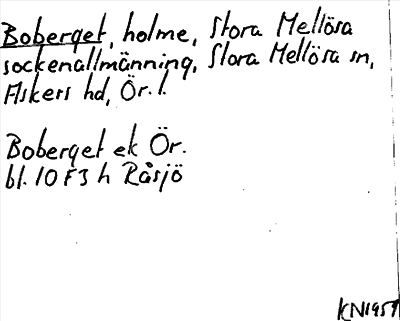 Boberget, holme, Stora Mellösa
sockenallmänning, Stora Mellösa sn,
Askers hd, Ör. l.
Boberget ek Ör.
bl. 10 F 3 h Råsjö
KN 1951